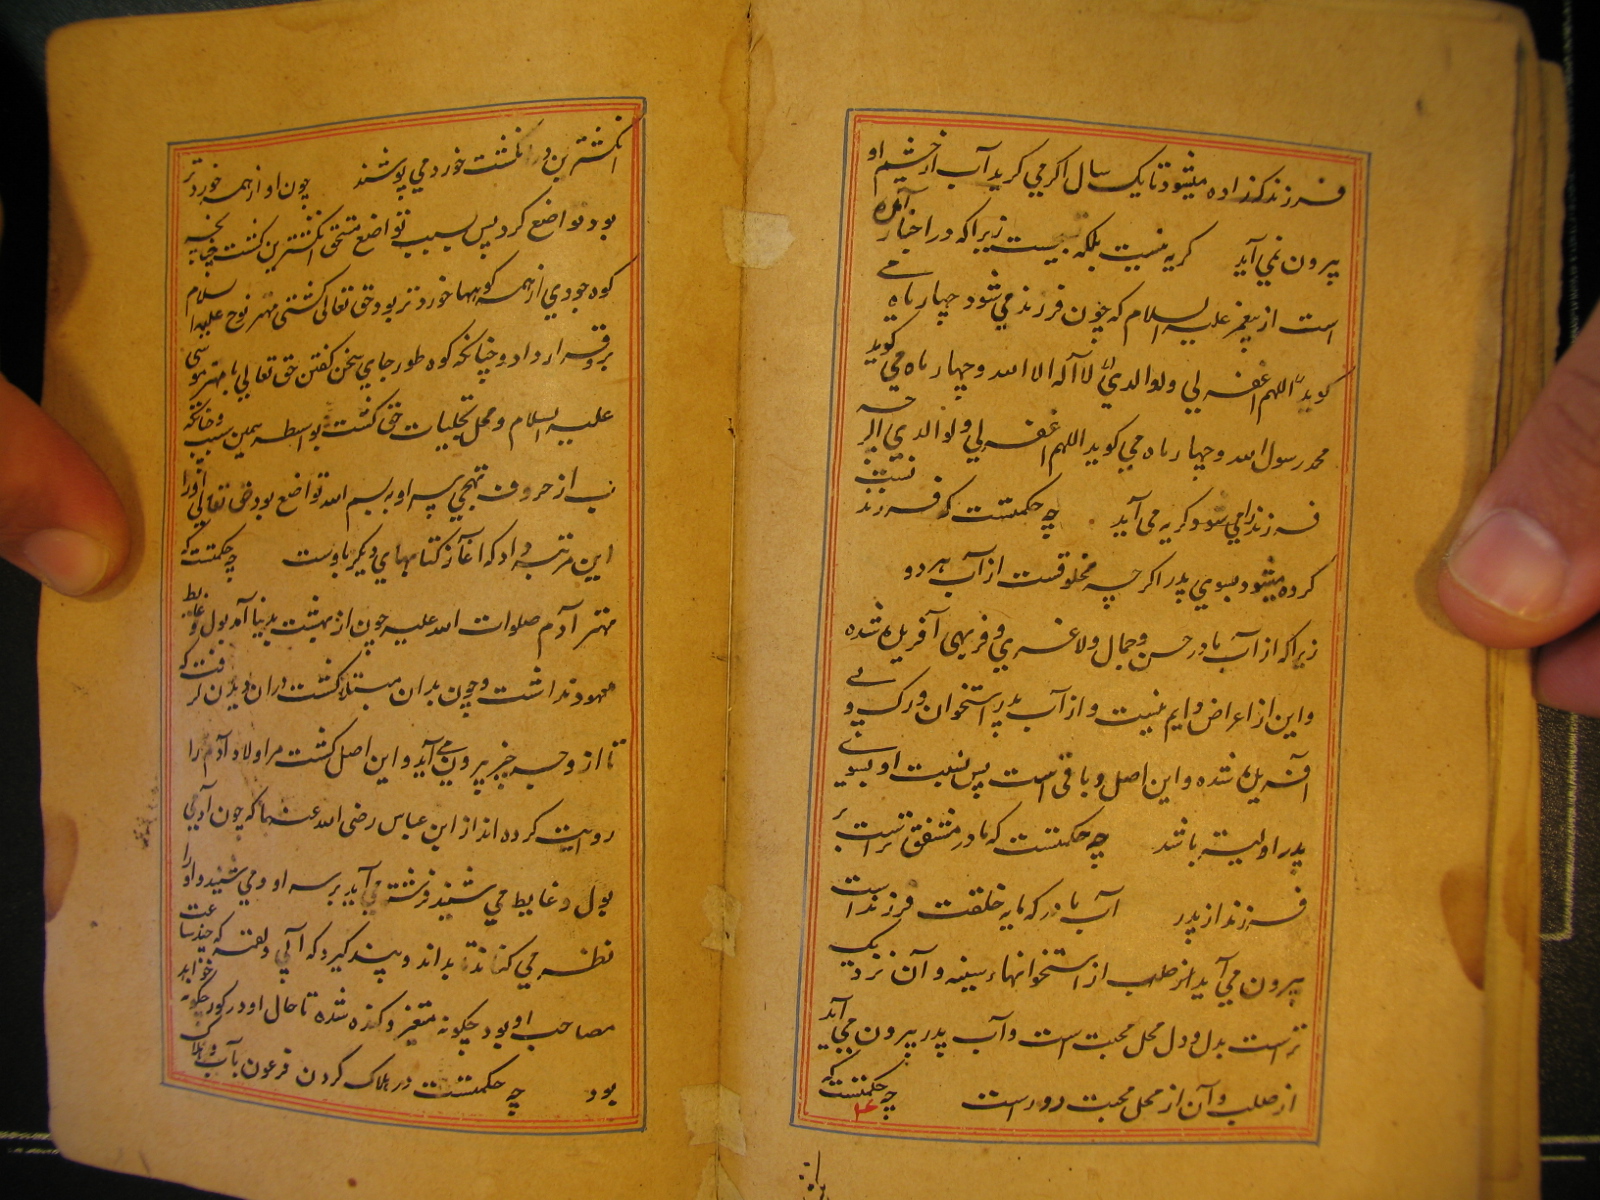 فرزند کزاده میشود تا یک سال اکر می کرید آب از چشم او
بیرون نمی آید کریه نیست بلکه نیست زیرا که در اخبار آمده
است از پیغمبر علیه السلام که چون فرزند می شود چهار ماه می
کوید اللهم اغفر لی ولوالدی لا آله الا الله و چهار ماه می کوید
محمد رسول الله و چهار ماه می کوید اللهم اغفر لی ولوالدی اکر چه
فرزند را می شود کریه می آید چه حکمتست که فرزند نسبت
کرده میشود بسوی پدر اکر چه مخلوقست از آب هر دو
زیرا که از آب مادر حسن و جمال ولاغری و فربهی آفریده شده
و این از اعراض دایم نیست و از آب پدر استخوان و رک و پی
آفریده شده و این اصل و باقی است پس نسبت او بسوی
پدر اولیتر باشد چه حکمتست که مادر مشفق تر است بر
فرزند از پدر آب مادر که مایه خلقت فرزند است
بیرون می آید از صلب از استخوانهاء سینه و آن نزدیک
تر است بدل و دل محل محبت است و آب پدر بیرون می آید
از صلب و آن از محل محبت دور است چه حکمتست که
انکشترین در انکشت خورد می پوشند چون او از همه خورد تر
بود تواضع کرد پس بسبب تواضع مستحق انکشترین کشت چنانچه
کوه جودی از همه کوهها خورد تر بود حق تعالی کشتی مهتر نوح علیه السلام
بر و قرار داد و چنانکه کوه طور جای سخن کفتن حق تعالی با مهتر موسی
علیه السلام و محل تجلیات حق کشت بواسطه همین سبب و چنانکه
ب از حروف تهجی بسر او به بسم الله تواضع بود حق تعالی اورا
این مرتبه داد که آغاز کتابهای دیکر باوست چه حکمتست که
مهتر آدم صلوات الله علیه چون از بهشت بدنیا آمد بول و غایط
معهود نداشت و چون بدان مبتلا کشت دران دیدن کرفت که
تا از وی چه چیز بیرون می آید و این اصل کشت مر اولاد آدم را
روایت کرده اند از ابن عباس رضی الله عنهما که چون آدمی
بول و غایط می شیند فرشته می آید بر سر او و می شیند و اورا
نظر می کناند تا بداند و پند کیرد که آنچه که چند ساعت
مصاحب او بود چکونه متغیر و کنده شده تا حال او در کور چکونه خواهد
بود چه حکمتست در هلاک کردن فرعون بآب و هلاک